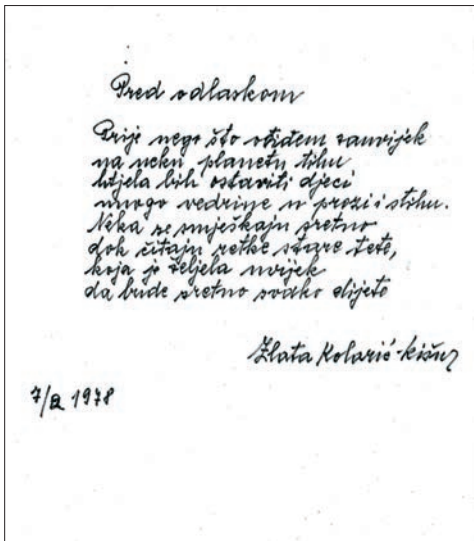 Pred odlaskom
Prije nego što otiđem zauvijek
na neku planetu tihu
htjela bih ostaviti djeci
mnogo vedrine u prozi i stihu.
Neka se smješkaju sretno
dok čitaju retke stare tete,
koja je željela uvijek
da bude sretno svako dijete
Zlata Kolarić-Kišur
1978